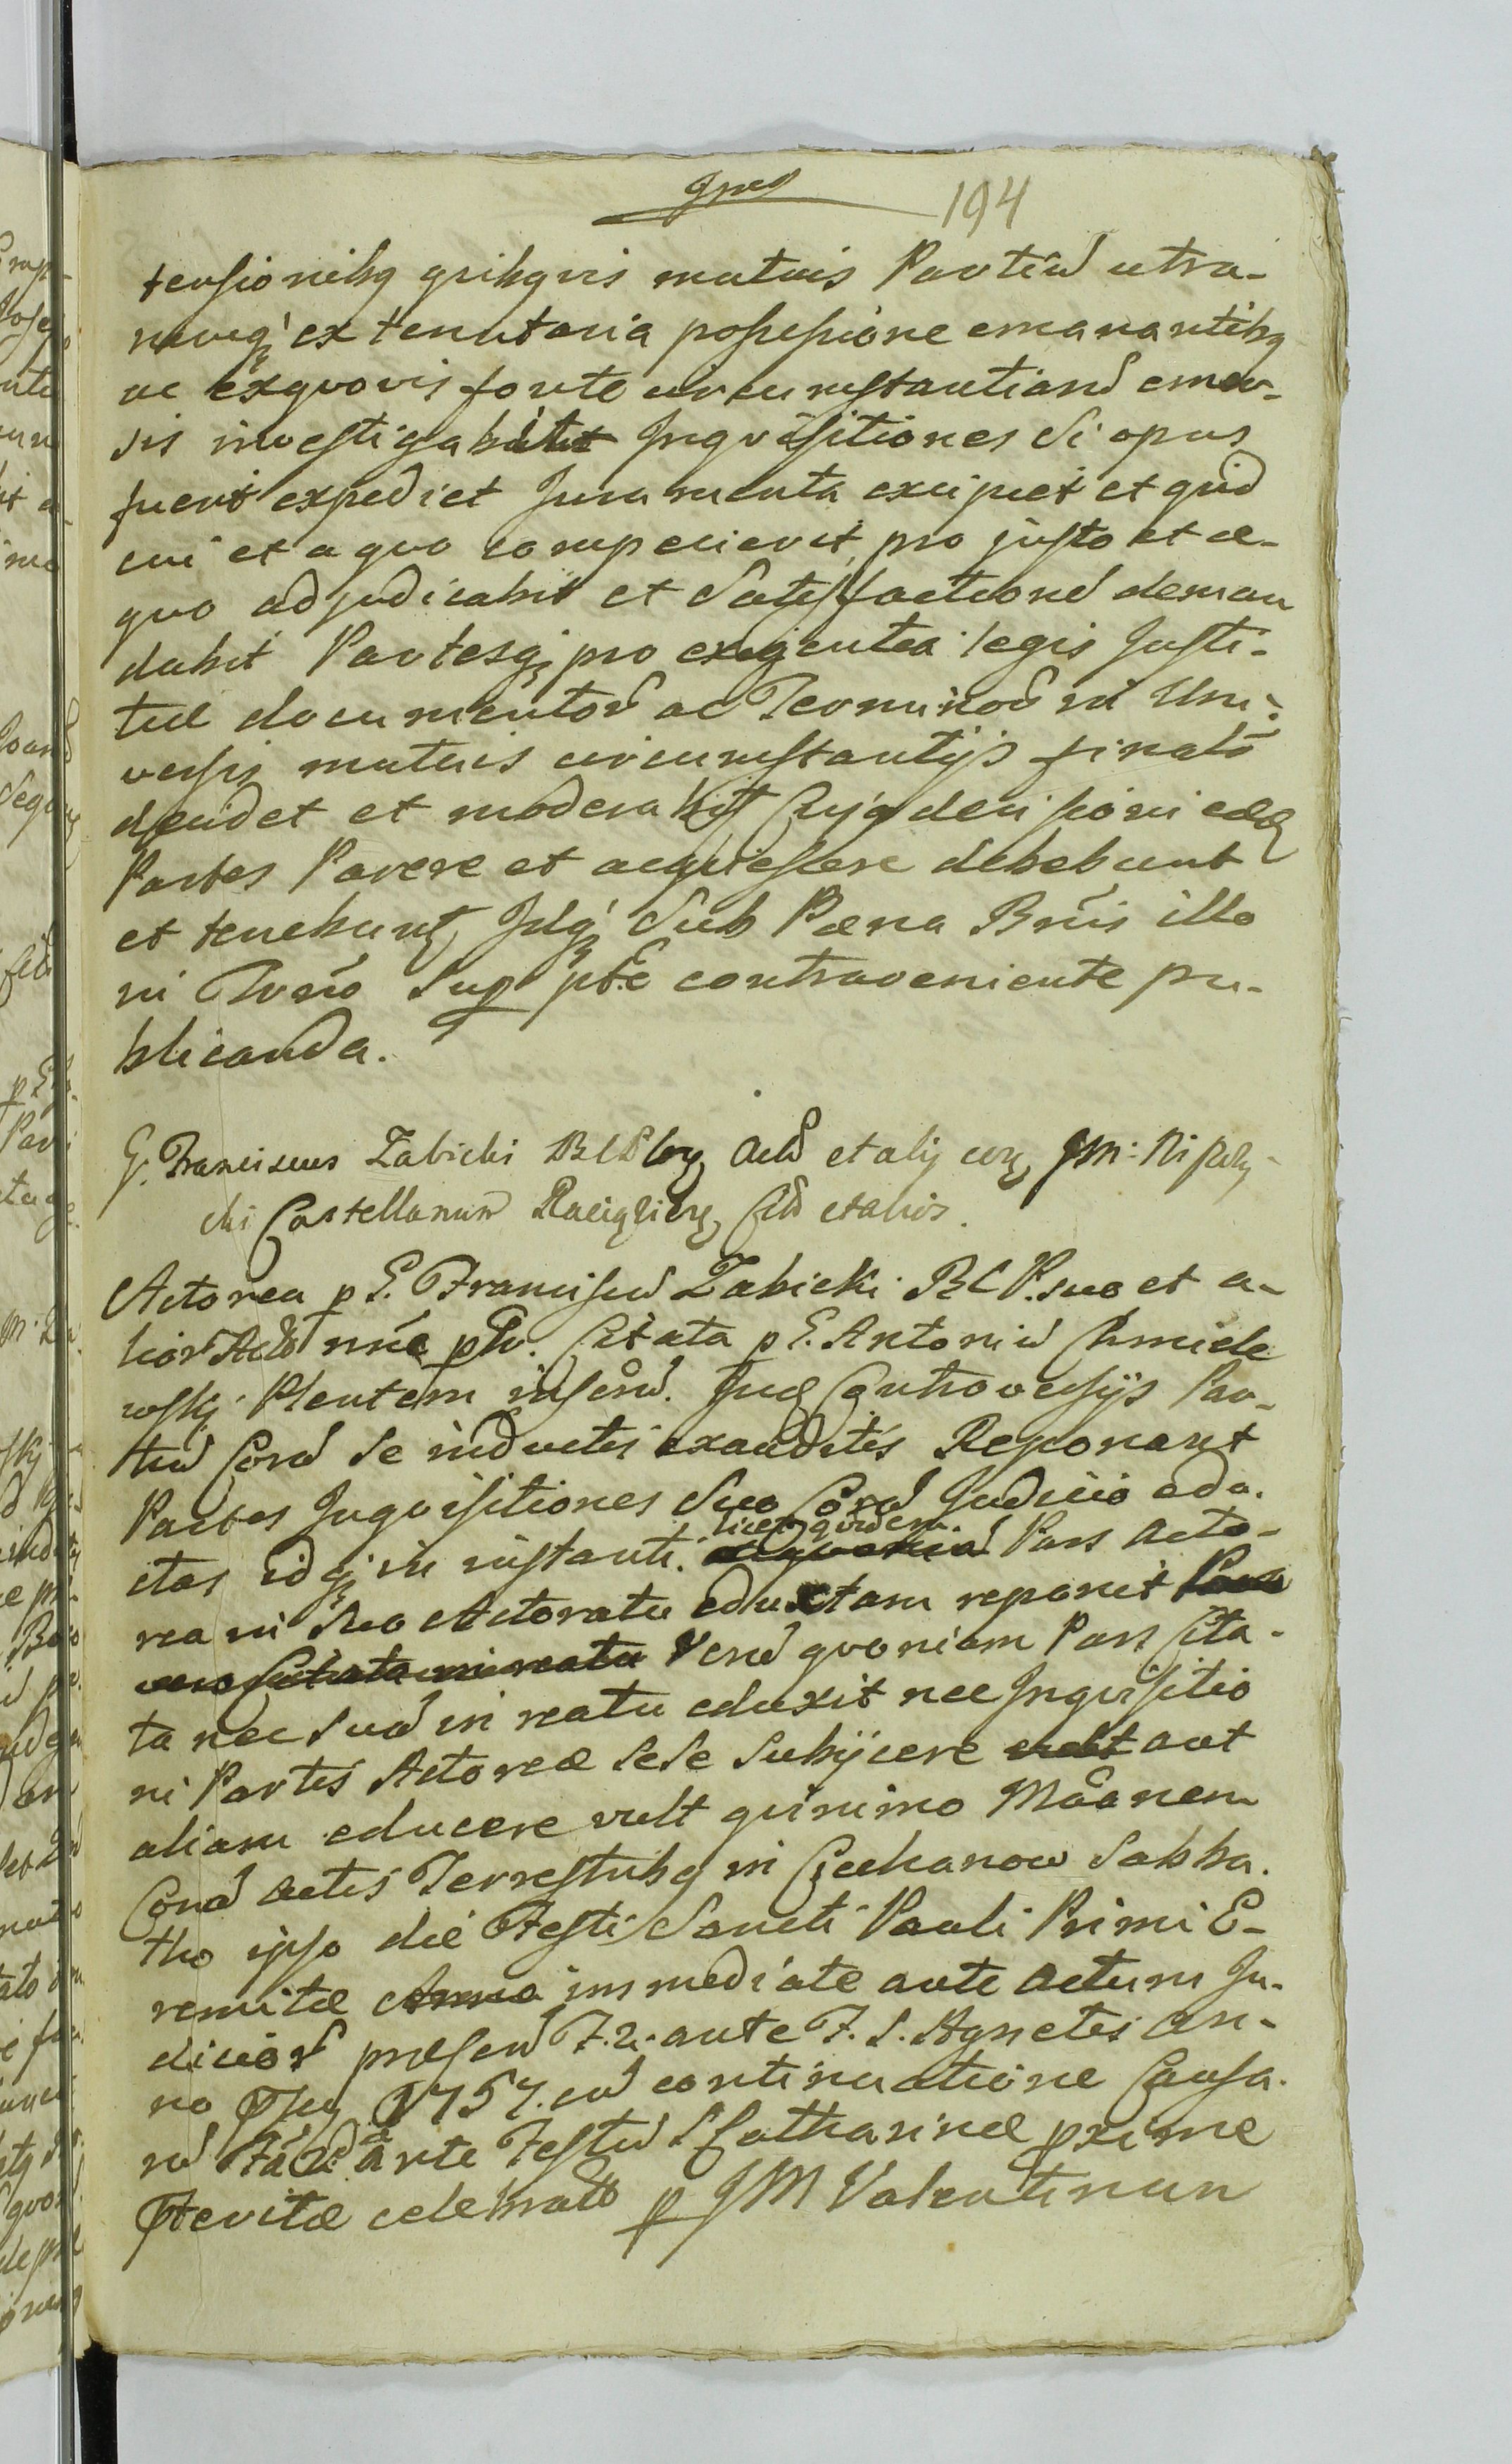 194
tensionibq quibqvis mutuis Partiu utra-
rumq ex tenutaria possessione emanantibq
ac exqvovis fonte circumstantiaru emer-
sis investigabit Inqvisitiones Si opus
fuerit expediet Juramenta excipiet et quid
cui et a quo competierit pro justo et æ-
quo adjudicabit et Satisfactione deman
dabit Partesq pro exigentia legis Justi-
tiæ documentor ac Terminor in Uni-
versis mutuis circumstantijs finalr
decidet et moderabit Cujq decisioni eæd
Partes Parere et acquiescere debebunt
et tenebunt, Idq Sub Pæna Bnis illo
ni Trno Sup pte contraveniente pu-
blicanda.
G. Franciscus Zabicki BCP Act et alij
cki Castellanum Racigzien Citt et alios.
Actorea p G. Franciscu Zabicki BCP. suo et a-
lior Act nne Citata p G. Antoniu Chmiele
wski Plentem
tiu Cora Se inductis exauditis Reponant
Partes Inqvisitiones Suo Cora Judicio edu-
ctas idq in instanti. licet quidem Pars Acto-
rea in Suo Actoratu eductam reponit
vero Citata in reatu Veru quoniam Pars Cita-
ta nec Sua in reatu eduxit nec Inqvisitio
ni Partis Actoreæ Sese Subijcere vult aut
aliam educere vult quinimo
Cora Actis Terrestribq in Czechanow Sabba-
tho ipso die Festi Sancti Pauli Primi E-
remitæ Anno immediate ante Actum Ju-
dicior præsen F. 2. ante F. S. Agnetis An-
no 1757. cu continuatione Causa-
ru ante Festu S Catharinæ pxime
Pteritæ celebratt p JM Valentinum